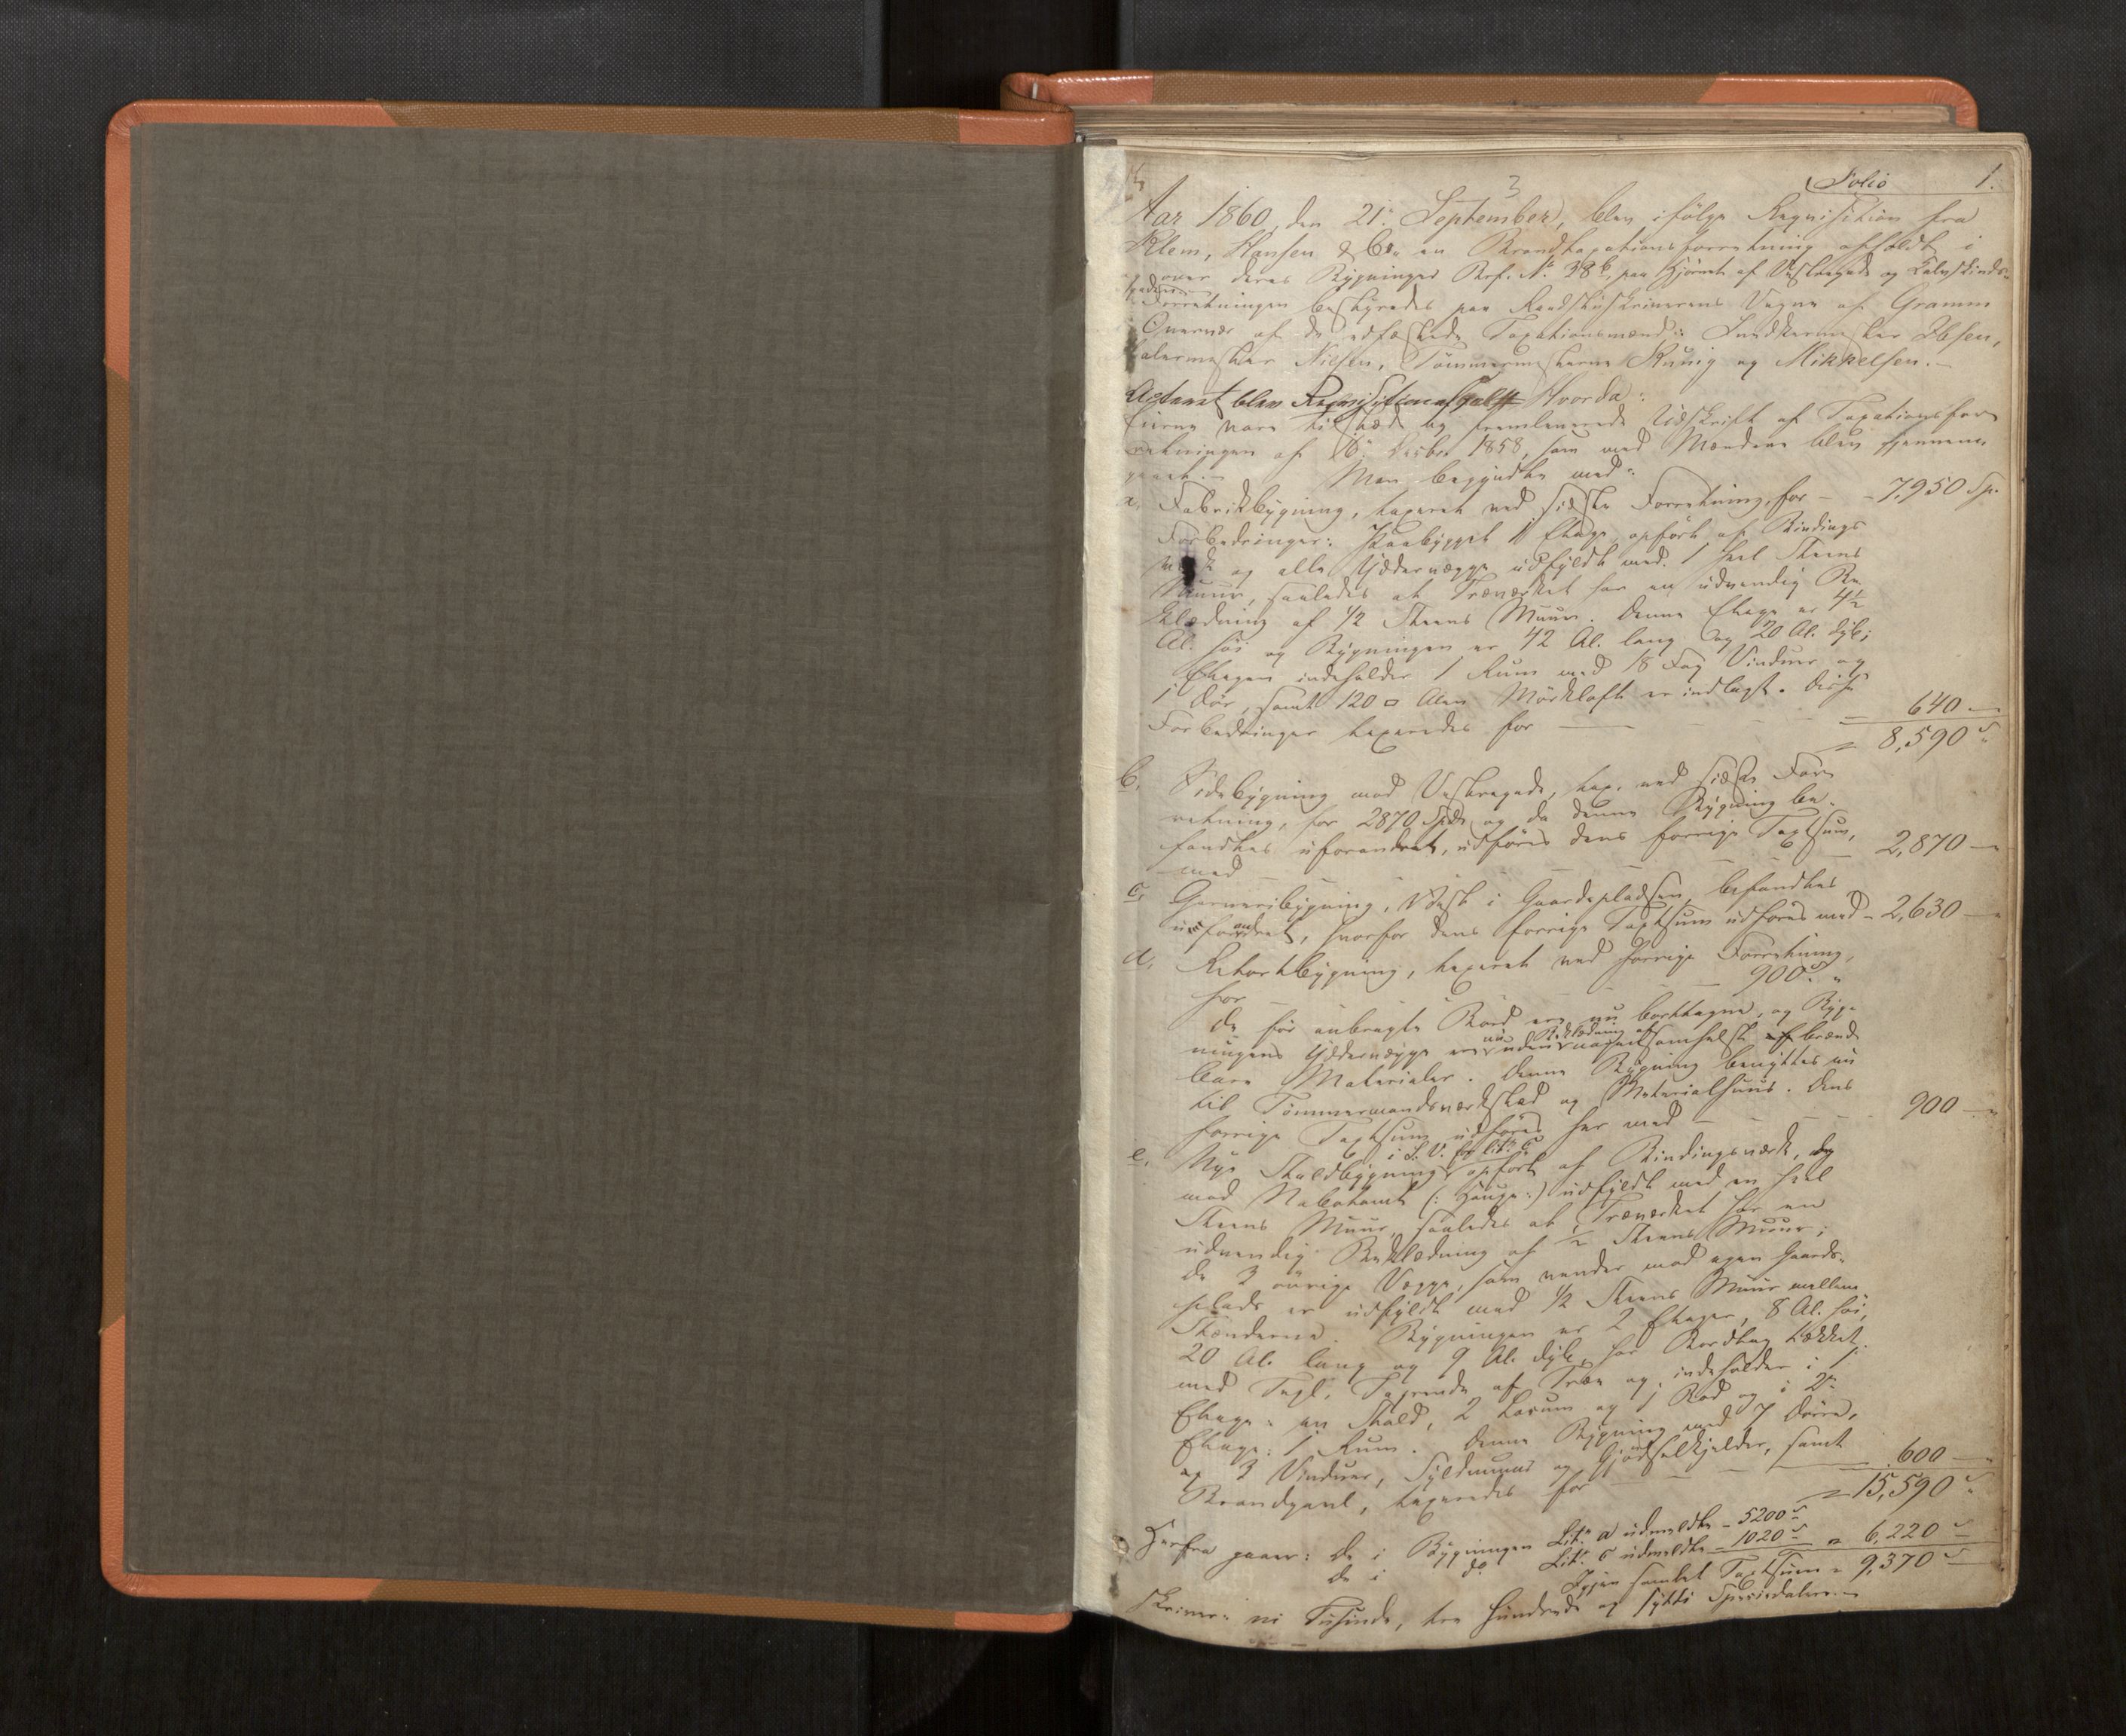 Folio 1.
3
Aar 1860, den 21. September, blev ifølge Requisition fra
Klem, Hansen & Co. en Brandtaxationsforretning afholdt i
og over deres Bygninger Brf. No. 38 b, paa Hjørnet af Vestregade og Kalvskinds-
gaden.
Forretningen bestyredes paa Raadstueskriverens Vegne af Gramm
Overvær af de edfæstede Taxationsmænd: Ibsen,
Malermester Nilsen, Tømmermesterne Kunig og Mikkelsen.
Acteret blev Requisitionen Hvorda:
Eierne vare tilstæde og fremleverede Udskrift af Taxationsfor
retningen af 16. Decbr. 1858, som med Mændene blev gjennem
gaaet. Man begyndte med:
a. Fabrikbygning, taxeret ved sidste Forretning, for 7,950 Sp.
Forbedringer: Paabygget 1 Etage, opført af Bindings
værk og alle Yddervægge udfyldt med 1 heel Steens
Muur, saaledes at Træværket har en udvendig Be
klædning af 1/2 Steens Muur. Denne Etage er 4 1/2
Al. høi og Bygningen er 42 Al. lang og 20 Al. dyb;
Etagen indeholder 1 Rum med 18 Fag Vinduer og
1 Dør, samt 120 □ Alen Mørkloft er indlagt. Disse
Forbedringer taxeredes for 640
= 8,590
b. Sidebygning mod Vestregade, tax. ved sidste For
retning, for 2870 Spd. og da denne Bygning be-
fandtes uforandret, udføres dens forrige Taxtsum,
med 2,870
c. Garveribygning, Vest i Gaardspladsen, befandtes
uforandret, hvorfor dens forrige Taxtsum udføres med 2,630
d. Retortbygning, taxeret ved forrige Forretning,
for 900
De før anbragte Bord ere nu borttagne, og Byg-
nu Beklædning af
ningens Yddervægge ere uden nogetsomhelst brænd
bare Materialer. Denne Bygning benyttes nu
til Tømmermandsværksted og Materialhuus. Dens
forrige Taxtsum udføres her med 900
i S. V. for Litr. c
e. Nye Staldbygning, opført af Bindingsværk, og
mod Nabotomt (: Hauge:) udfyldt med en heel
Steens Muur, saaledes at Træværket har en
udvendig Beklædning af 1/2 Steens Muur;
de 3 øvrige Vægge, som vender mod egen Gaards-
plads er udfyldt med 1/2 Steens Muur mellem
Stænderne. Bygningen er 2 Etager, 8 Al. høi,
20 Al. lang og 9 Al. dyb, har Bordtag tækket
med Tegl, Tagrende af Træe og indeholder i 1.
Etage: en Stald, 2 Locum og 1 Bod og i 2.
Etage: 1 Rum. Denne Bygning med 7 Dørre,
og 3 Vinduer, Syldmuur og Gjødselkjelder, samt
Brandgavl, taxeredes for 600
= 15,590
Herfra gaaer: de i Bygningen Litr. a udmeldte - 5200
de i do. Litr. c udmeldte - 1020 = 6,220
Igjen samlet Taxtsum = 9,370
skriver: ni Tusinde, tre Hundrede og sytti Speciedaler.